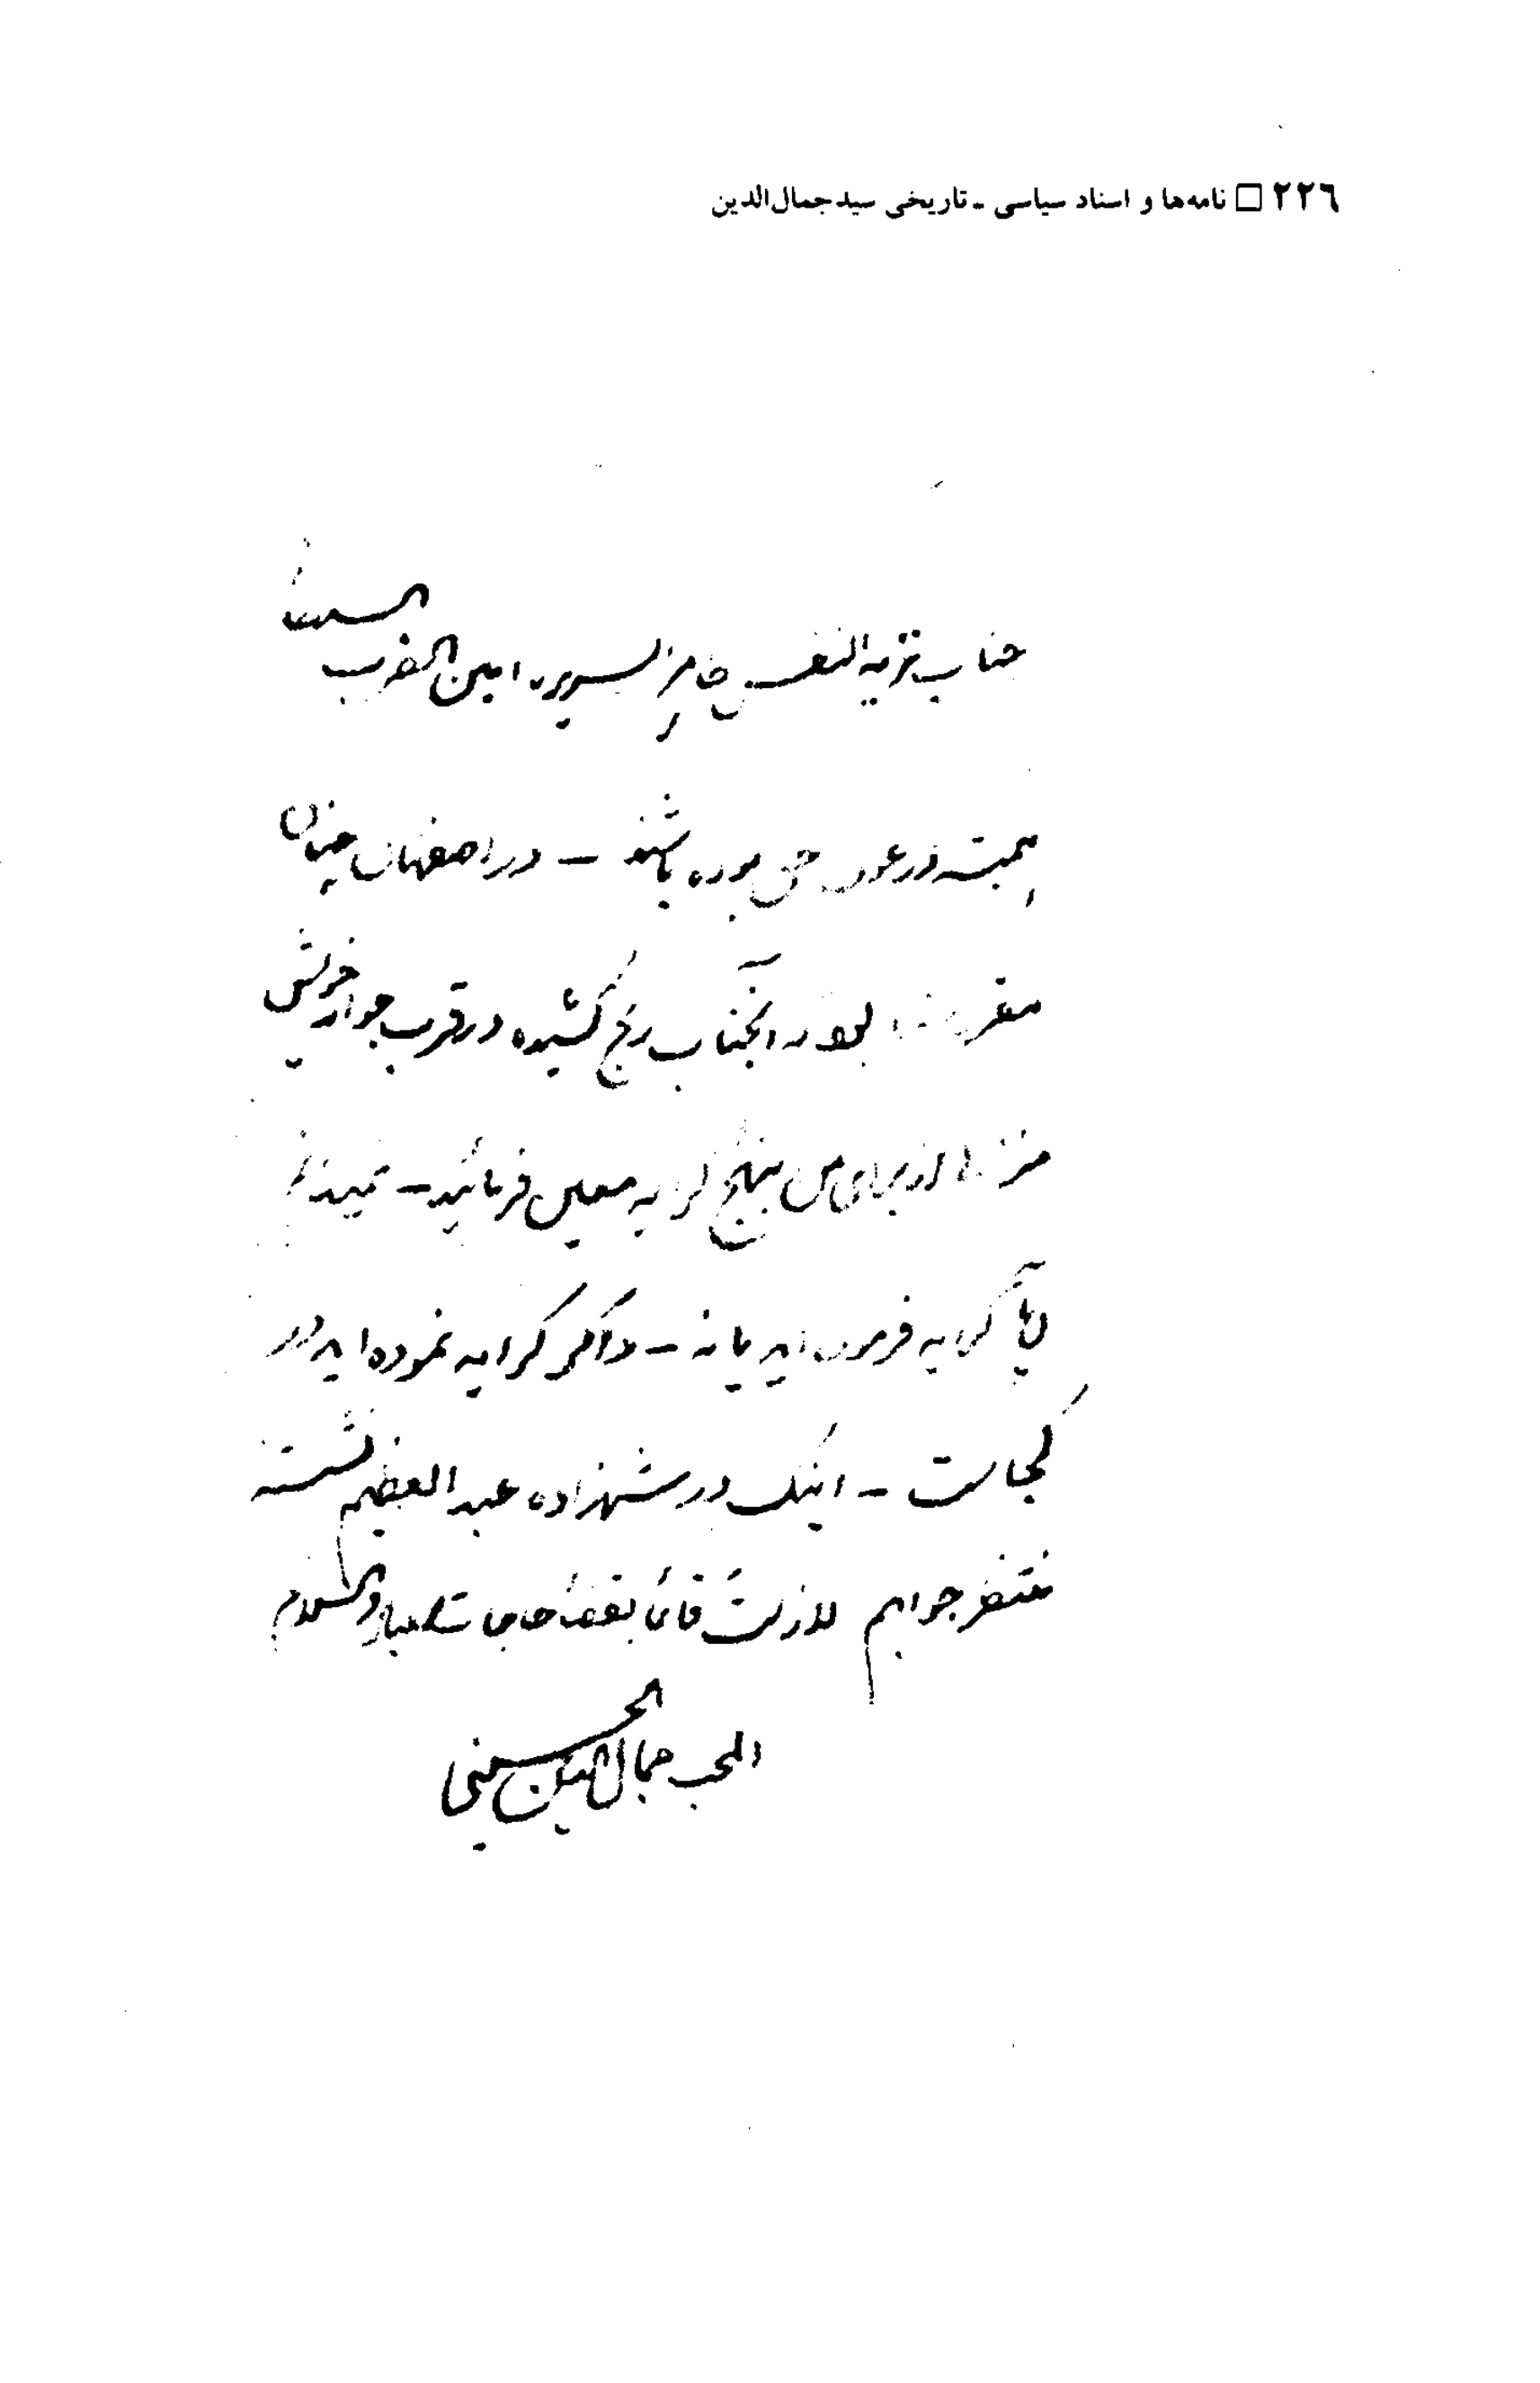 ٢٢٦ □ نامه‌ها و اسناد سیاسی ـ تاریخی سید جمال‌الدین
جناب نزیه النفس طاهر السریره امین الضرب
همیشه در عون حق بوده باشند ـ در اصفهان چنان
مقرر بود آنجناب رنج کشیده در قرب جوار خویش
از برای من بنهج کرایه معین فرمائید ـ نمیدانم
آیا کرایه فرموده اید یا نه ـ و اگر کرایه نموده اید در
کجاست ـ اینک در شهزاده عبدالعظیم نشسته
منتظر جوابم لازلت والسلام
المحب جمال الدین الحسینی